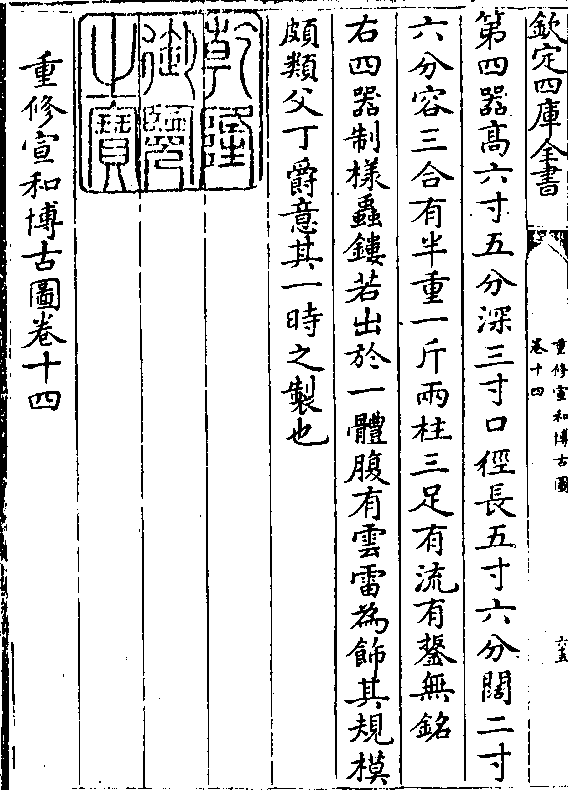 欽定四庫全書
重修宣和博古圖
卷十四
六五
第四器高六寸五分深三寸口徑長五寸六分闊二寸
六分容三合有半重一斤兩柱三足有流有鋬無銘
右四器制樣蟲鏤若出於一體腹有雲雷為飾其規模
頗類父丁爵意其一時之製也
乾隆
御覽
之寶
重修宣和博古圖卷十四